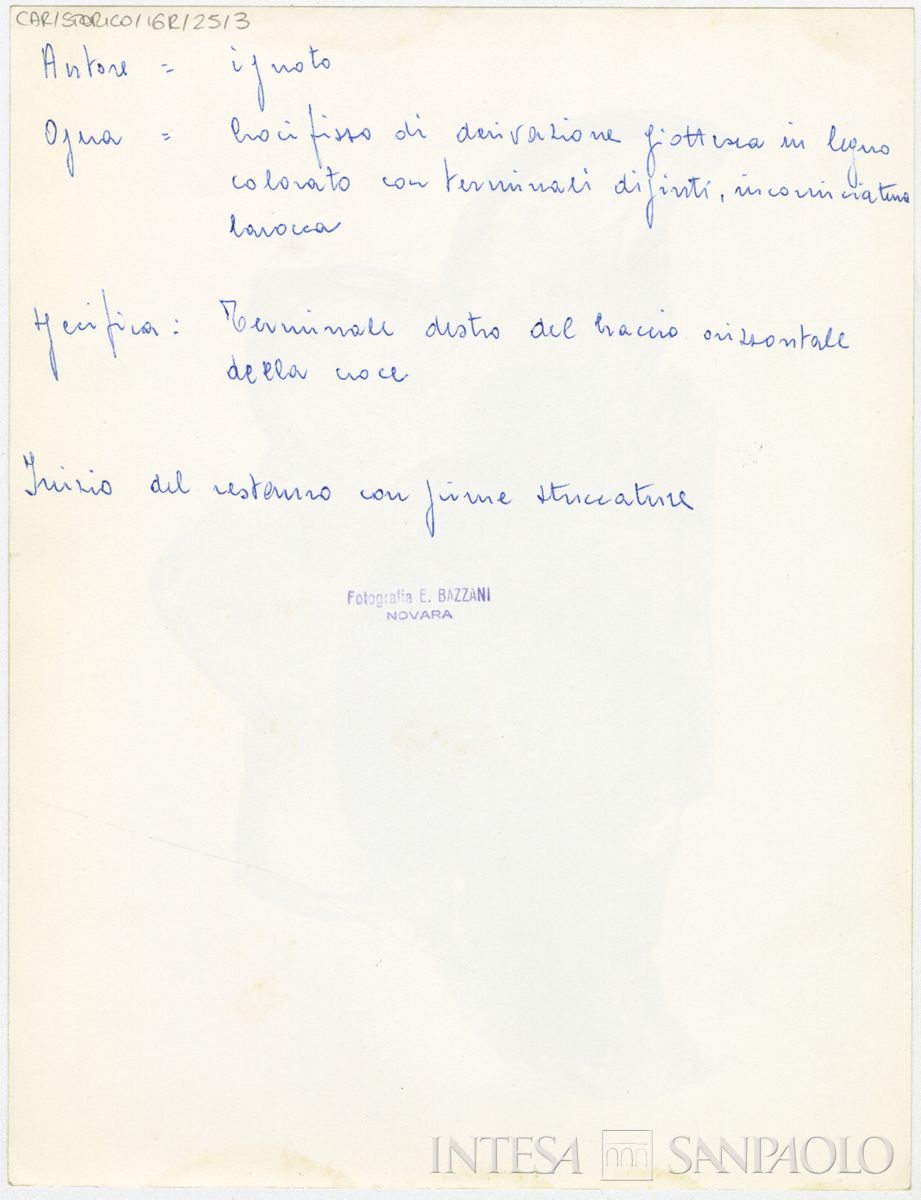 CAR/STORICO/16R/25/3
Autore = ignoto
Opera = Crocifisso di derivazione giottesca in legno
colorato con terminali dipinti, incorniciatura
barocca
specifica: Terminale destro del braccio orizzontale
della croce
Inizio del restauro con prime stuccature
Fotografia E. BAZZANI
NOVARA
INTESA SANPAOLO